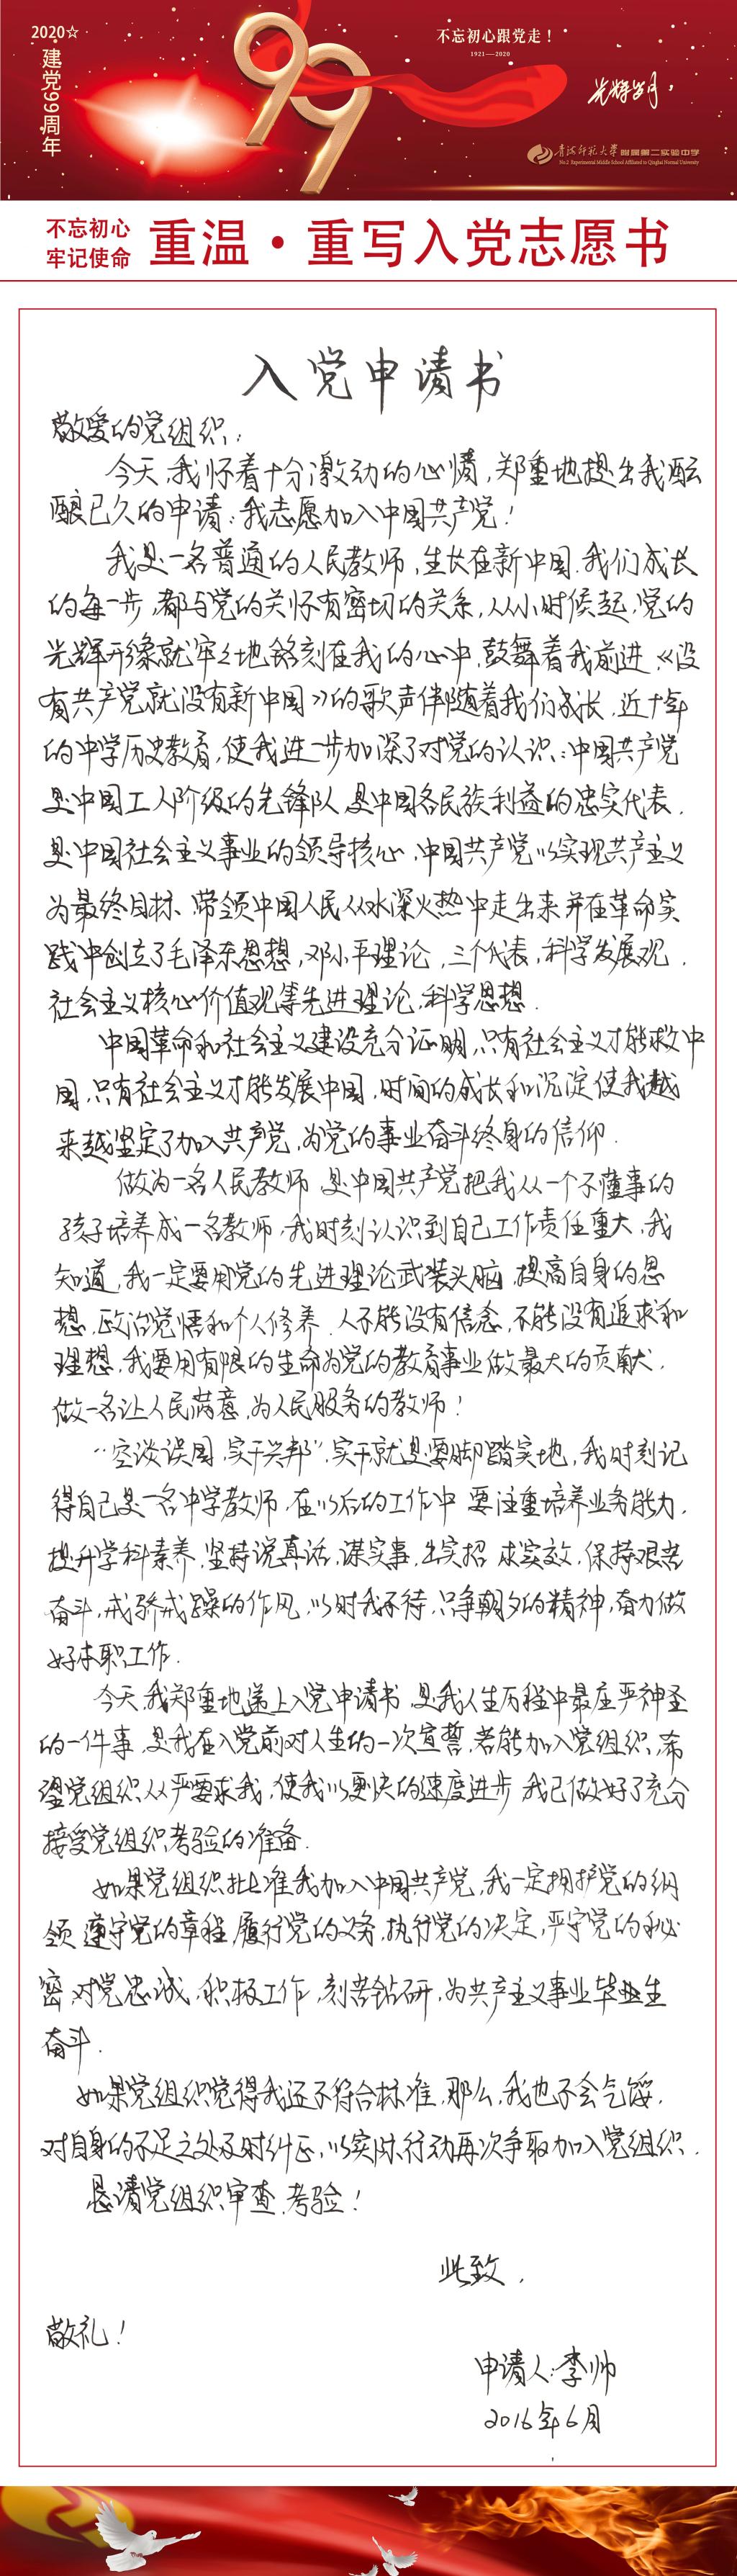 2020☆
建党99周年
99
不忘初心跟党走！
1921——2020
光辉岁月
青海师范大学附属第二实验中学
No.2 Experimental Middle School Affiliated to Qinghai Normal University
不忘初心
牢记使命
重温·重写入党志愿书
入党申请书
敬爱的党组织：
今天，我怀着十分激动的心情，郑重地提出我酝
酿已久的申请：我志愿加入中国共产党！
我是一名普通的人民教师，生长在新中国.我们成长
的每一步，都与党的关怀有密切的关系，从小时候起，党的
光辉形像就牢々地铭刻在我的心中，鼓舞着我前进，《没
有共产党就没有新中国》的歌声伴随着我们成长，近十年
的中学历史教育，使我进一步加深了对党的认识：中国共产党
是中国工人阶级的先锋队，是中国各民族利益的忠实代表，
是中国社会主义事业的领导核心，中国共产党以实现共产主义
为最终目标、带领中国人民从水深火热中走出来并在革命实
践中创立了毛泽东思想，邓小平理论，三个代表，科学发展观，
社会主义核心价值观等先进理论，科学思想.
中国革命和社会主义建设充分证明，只有社会主义才能救中
国，只有社会主义才能发展中国，时间的成长和沉淀使我越
来越坚定了加入共产党，为党的事业奋斗终身的信仰.
做为一名人民教师，是中国共产党把我从一个不懂事的
孩子培养成一名教师，我时刻认识到自己工作责任重大，我
知道，我一定要用党的先进理论武装头脑，提高自身的思
想，政治觉悟和个人修养.人不能没有信念，不能没有追求和
理想，我要用有限的生命为党的教育事业做最大的贡献，
做一名让人民满意，为人民服务的教师！
“空谈误国，实干兴邦”，实干就是要脚踏实地，我时刻记
得自己是一名中学教师，在以后的工作中 要注重培养业务能力，
提升学科素养，坚持说真话，谋实事，出实招 求实效，保持艰苦
奋斗，戒骄戒躁的作风，以时我不待，只争朝夕的精神，奋力做
好本职工作.
今天，我郑重地递上入党申请书，是我人生历程中最庄严神圣
的一件事，是我在入党前对人生的一次宣誓，若能加入党组织，希
望党组织从严要求我，使我以更快的速度进步，我已做好了充分
接受党组织考验的准备.
如果党组织批准我加入中国共产党，我一定拥护党的纲
领，遵守党的章程，履行党的义务，执行党的决定，严守党的秘
密，对党忠诚，积极工作，刻苦钻研，为共产主义事业毕生
奋斗.
如果党组织觉得我还不符合标准，那么，我也不会气馁，
对自身的不足之处及时纠正，以实际行动再次争取加入党组织.
恳请党组织审查，考验！
此致，
敬礼！
申请人：李帅
2016年6月